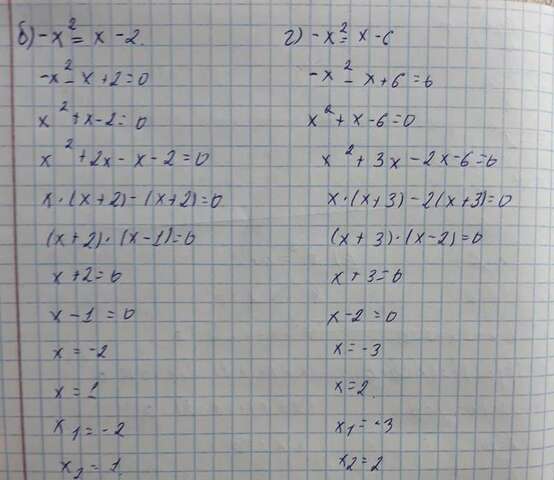 б) -x² = x - 2.
-x² - x + 2 = 0
x² + x - 2 = 0
x² + 2x - x - 2 = 0
x · (x + 2) - (x + 2) = 0
(x + 2) · (x - 1) = 0
x + 2 = 0
x - 1 = 0
x = -2
x = 1
x₁ = -2
x₂ = 1
г) -x² = x - 6
-x² - x + 6 = 0
x² + x - 6 = 0
x² + 3x - 2x - 6 = 0
x · (x + 3) - 2(x + 3) = 0
(x + 3) · (x - 2) = 0
x + 3 = 0
x - 2 = 0
x = -3
x = 2
x₁ = -3
x₂ = 2